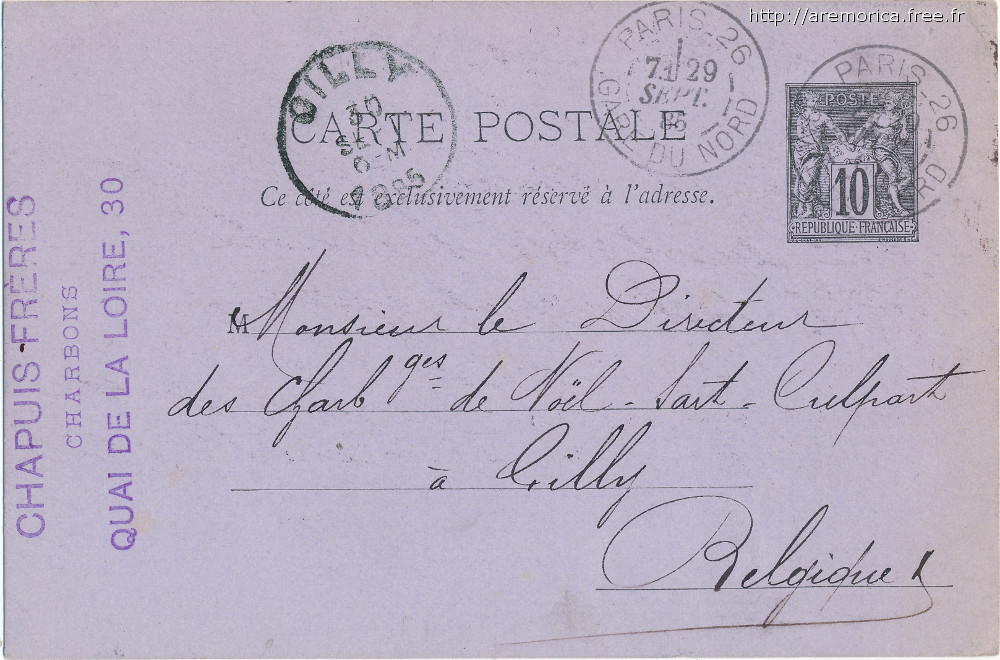 http://aremorica.free.fr
PARIS-26
7E 29
SEPT.
85
GARE DU NORD
PARIS-26
GILLY
30
SEPT
6-M
1885
CARTE POSTALE
Ce côté est exclusivement réservé à l'adresse.
POSTES
10
REPUBLIQUE FRANÇAISE
CHAPUIS-FRÈRES
CHARBONS
QUAI DE LA LOIRE, 30
Monsieur le Directeur
des Charbges de Noël-Sart-Culpart
à Gilly
Belgique